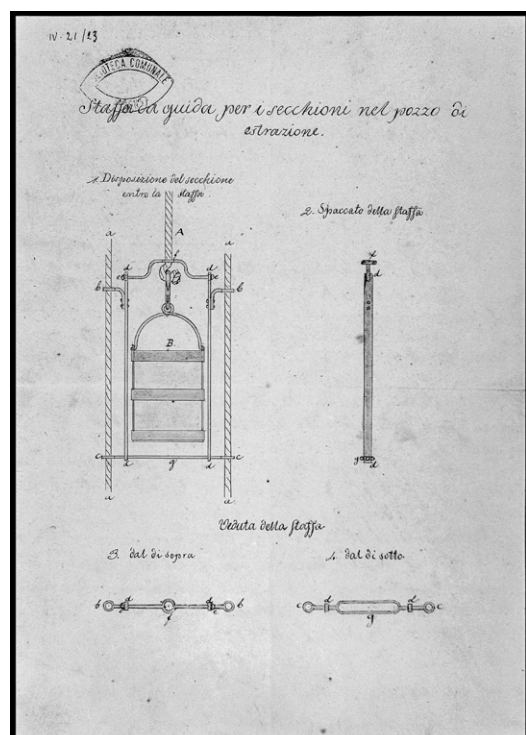 IV. 21/23
BIBLIOTECA COMUNALE
Staffa da guida per i secchioni nel pozzo di
estrazione.
1. Disposizione del secchione
entro la staffa
2. Spaccato della staffa
a
a
A
f
d
d
b
b
B
c
d
g
d
c
a
a
d
g
d
Veduta della staffa
3. dal di sopra
4. dal di sotto
b
d
f
d
b
c
d
g
d
c